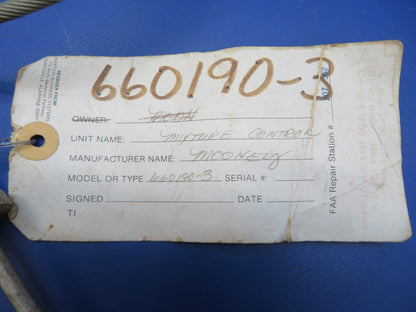 660190-3
OWNER:
UNIT NAME: MIXTURE CONTROL
MANUFACTURER NAME: MOONEY
MODEL OR TYPE 660190-3 SERIAL #:
SIGNED DATE
TI
FAA Repair Station #
REORDER FROM